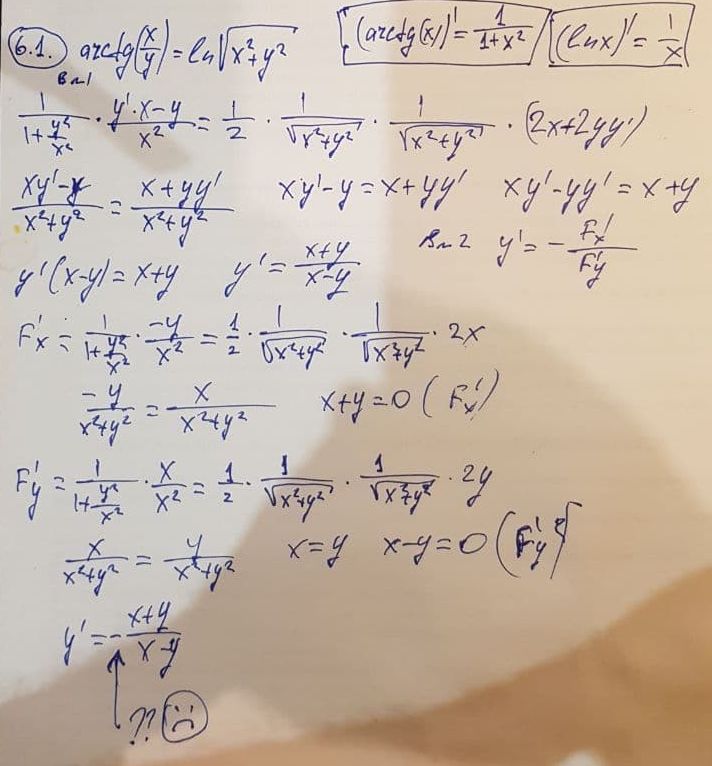 6.1. arctg(x/y) = ln√(x²+y²) (arctg(x))' = 1/(1+x²) (ln x)' = 1/x
1/(1+y²/x²) · (y'·x-y)/x² = 1/2 · 1/√(x²+y²) · 1/√(x²+y²) · (2x+2yy')
(xy'-y)/(x²+y²) = (x+yy')/(x²+y²) xy'-y = x+yy' xy'-yy' = x+y
y'(x-y) = x+y y' = (x+y)/(x-y) y' = - F'x/F'y
F'x = 1/(1+y²/x²) · -y/x² = 1/2 · 1/√(x²+y²) · 1/√(x²+y²) · 2x
-y/(x²+y²) = x/(x²+y²) x+y=0 (F'x)
F'y = 1/(1+y²/x²) · x/x² = 1/2 · 1/√(x²+y²) · 1/√(x²+y²) · 2y
x/(x²+y²) = y/(x²+y²) x=y x-y=0 (F'y)
y' = - (x+y)/(x-y)
??